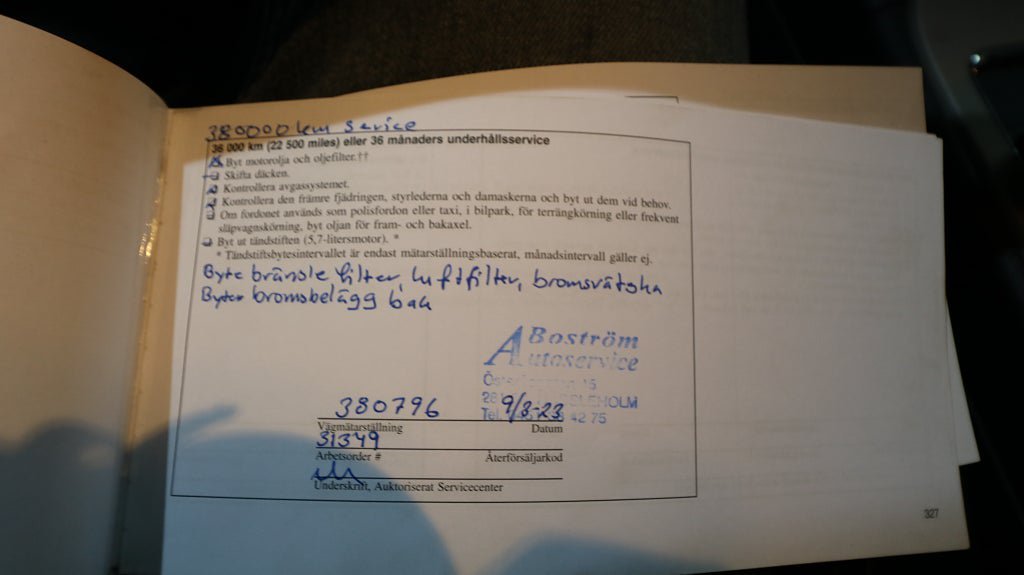 380000 km Service
36 000 km (22 500 miles) eller 36 månaders underhållsservice
Byt motorolja och oljefilter.††
Skifta däcken.
Kontrollera avgassystemet.
Kontrollera den främre fjädringen, styrlederna och damaskerna och byt ut dem vid behov.
Om fordonet används som polisfordon eller taxi, i bilpark, för terrängkörning eller frekvent
släpvagnskörning, byt oljan för fram- och bakaxel.
Byt ut tändstiften (5,7-litersmotor). *
* Tändstiftsbytesintervallet är endast mätarställningsbaserat, månadsintervall gäller ej.
Byte bränsle filter, luftfilter, bromsvätska
Byter bromsbelägg bak
Boström
Autoservice
15
28
Tel. 42 75
380796 9/3-23
Vägmätarställning Datum
31349
Arbetsorder # Återförsäljarkod
Underskrift, Auktoriserat Servicecenter
327